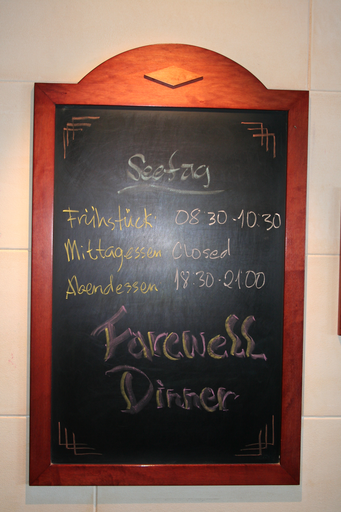 Seetag
Frühstück 08:30-10:30
Mittagessen Closed
Abendessen 18:30-21:00
Farewell
Dinner